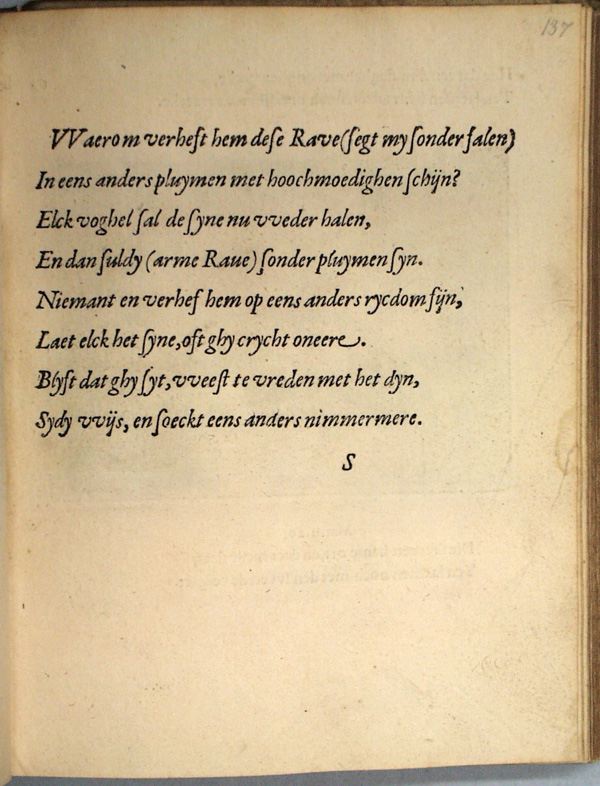 137
VVaerom verheft hem dese Rave (segt my sonder falen)
In eens anders pluymen met hoochmoedighen schijn?
Elck voghel sal de syne nu vveder halen,
En dan suldy (arme Raue) sonder pluymen syn.
Niemant en verhef hem op eens anders rycdom sijn,
Laet elck het syne, oft ghy crycht oneere.
Blyft dat ghy syt, vveest te vreden met het dyn,
Sydy vvijs, en soeckt eens anders nimmermere.
S